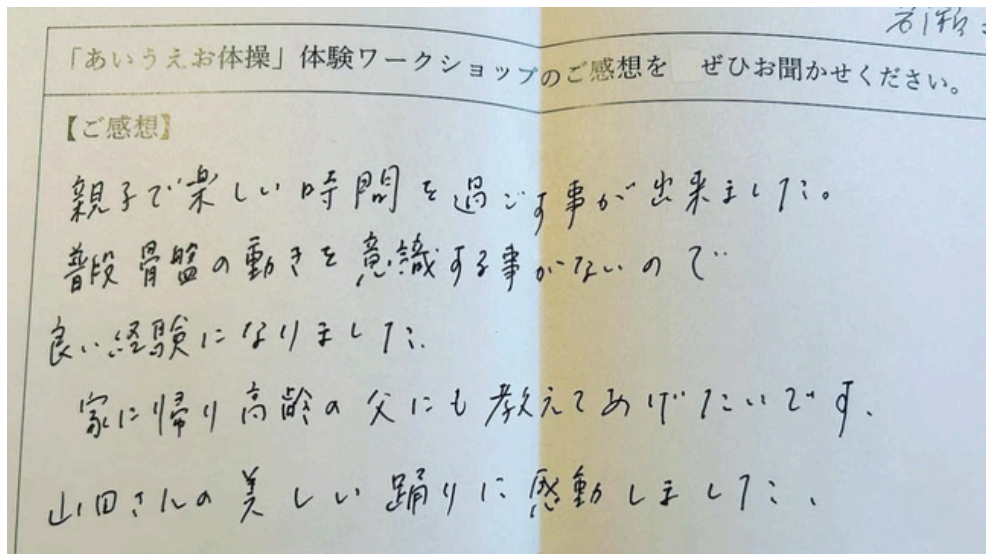 「あいうえお体操」体験ワークショップのご感想を　ぜひお聞かせください。
【ご感想】
親子で楽しい時間を過ごす事が出来ました。
普段骨盤の動きを意識する事がないので
良い経験になりました。
家に帰り高齢の父にも教えてあげたいです。
山田さんの美しい踊りに感動しました。